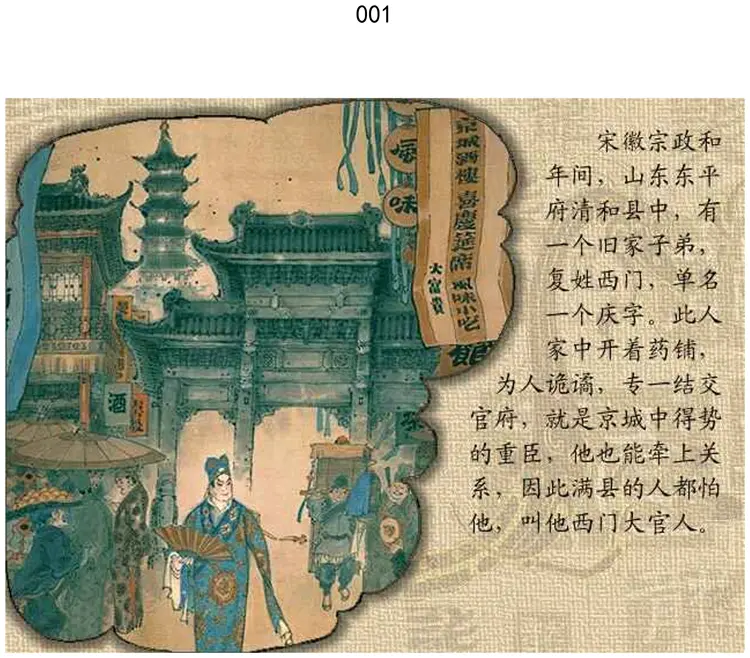 001
宋徽宗政和
年间，山东东平
府清和县中，有
一个旧家子弟，
复姓西门，单名
一个庆字。此人
家中开着药铺，
为人诡谲，专一结交
官府，就是京城中得势
的重臣，他也能牵上关
系，因此满县的人都怕
他，叫他西门大官人。
風
味
京城酒樓 喜慶筵席 風味小吃
大富貴
館
酒